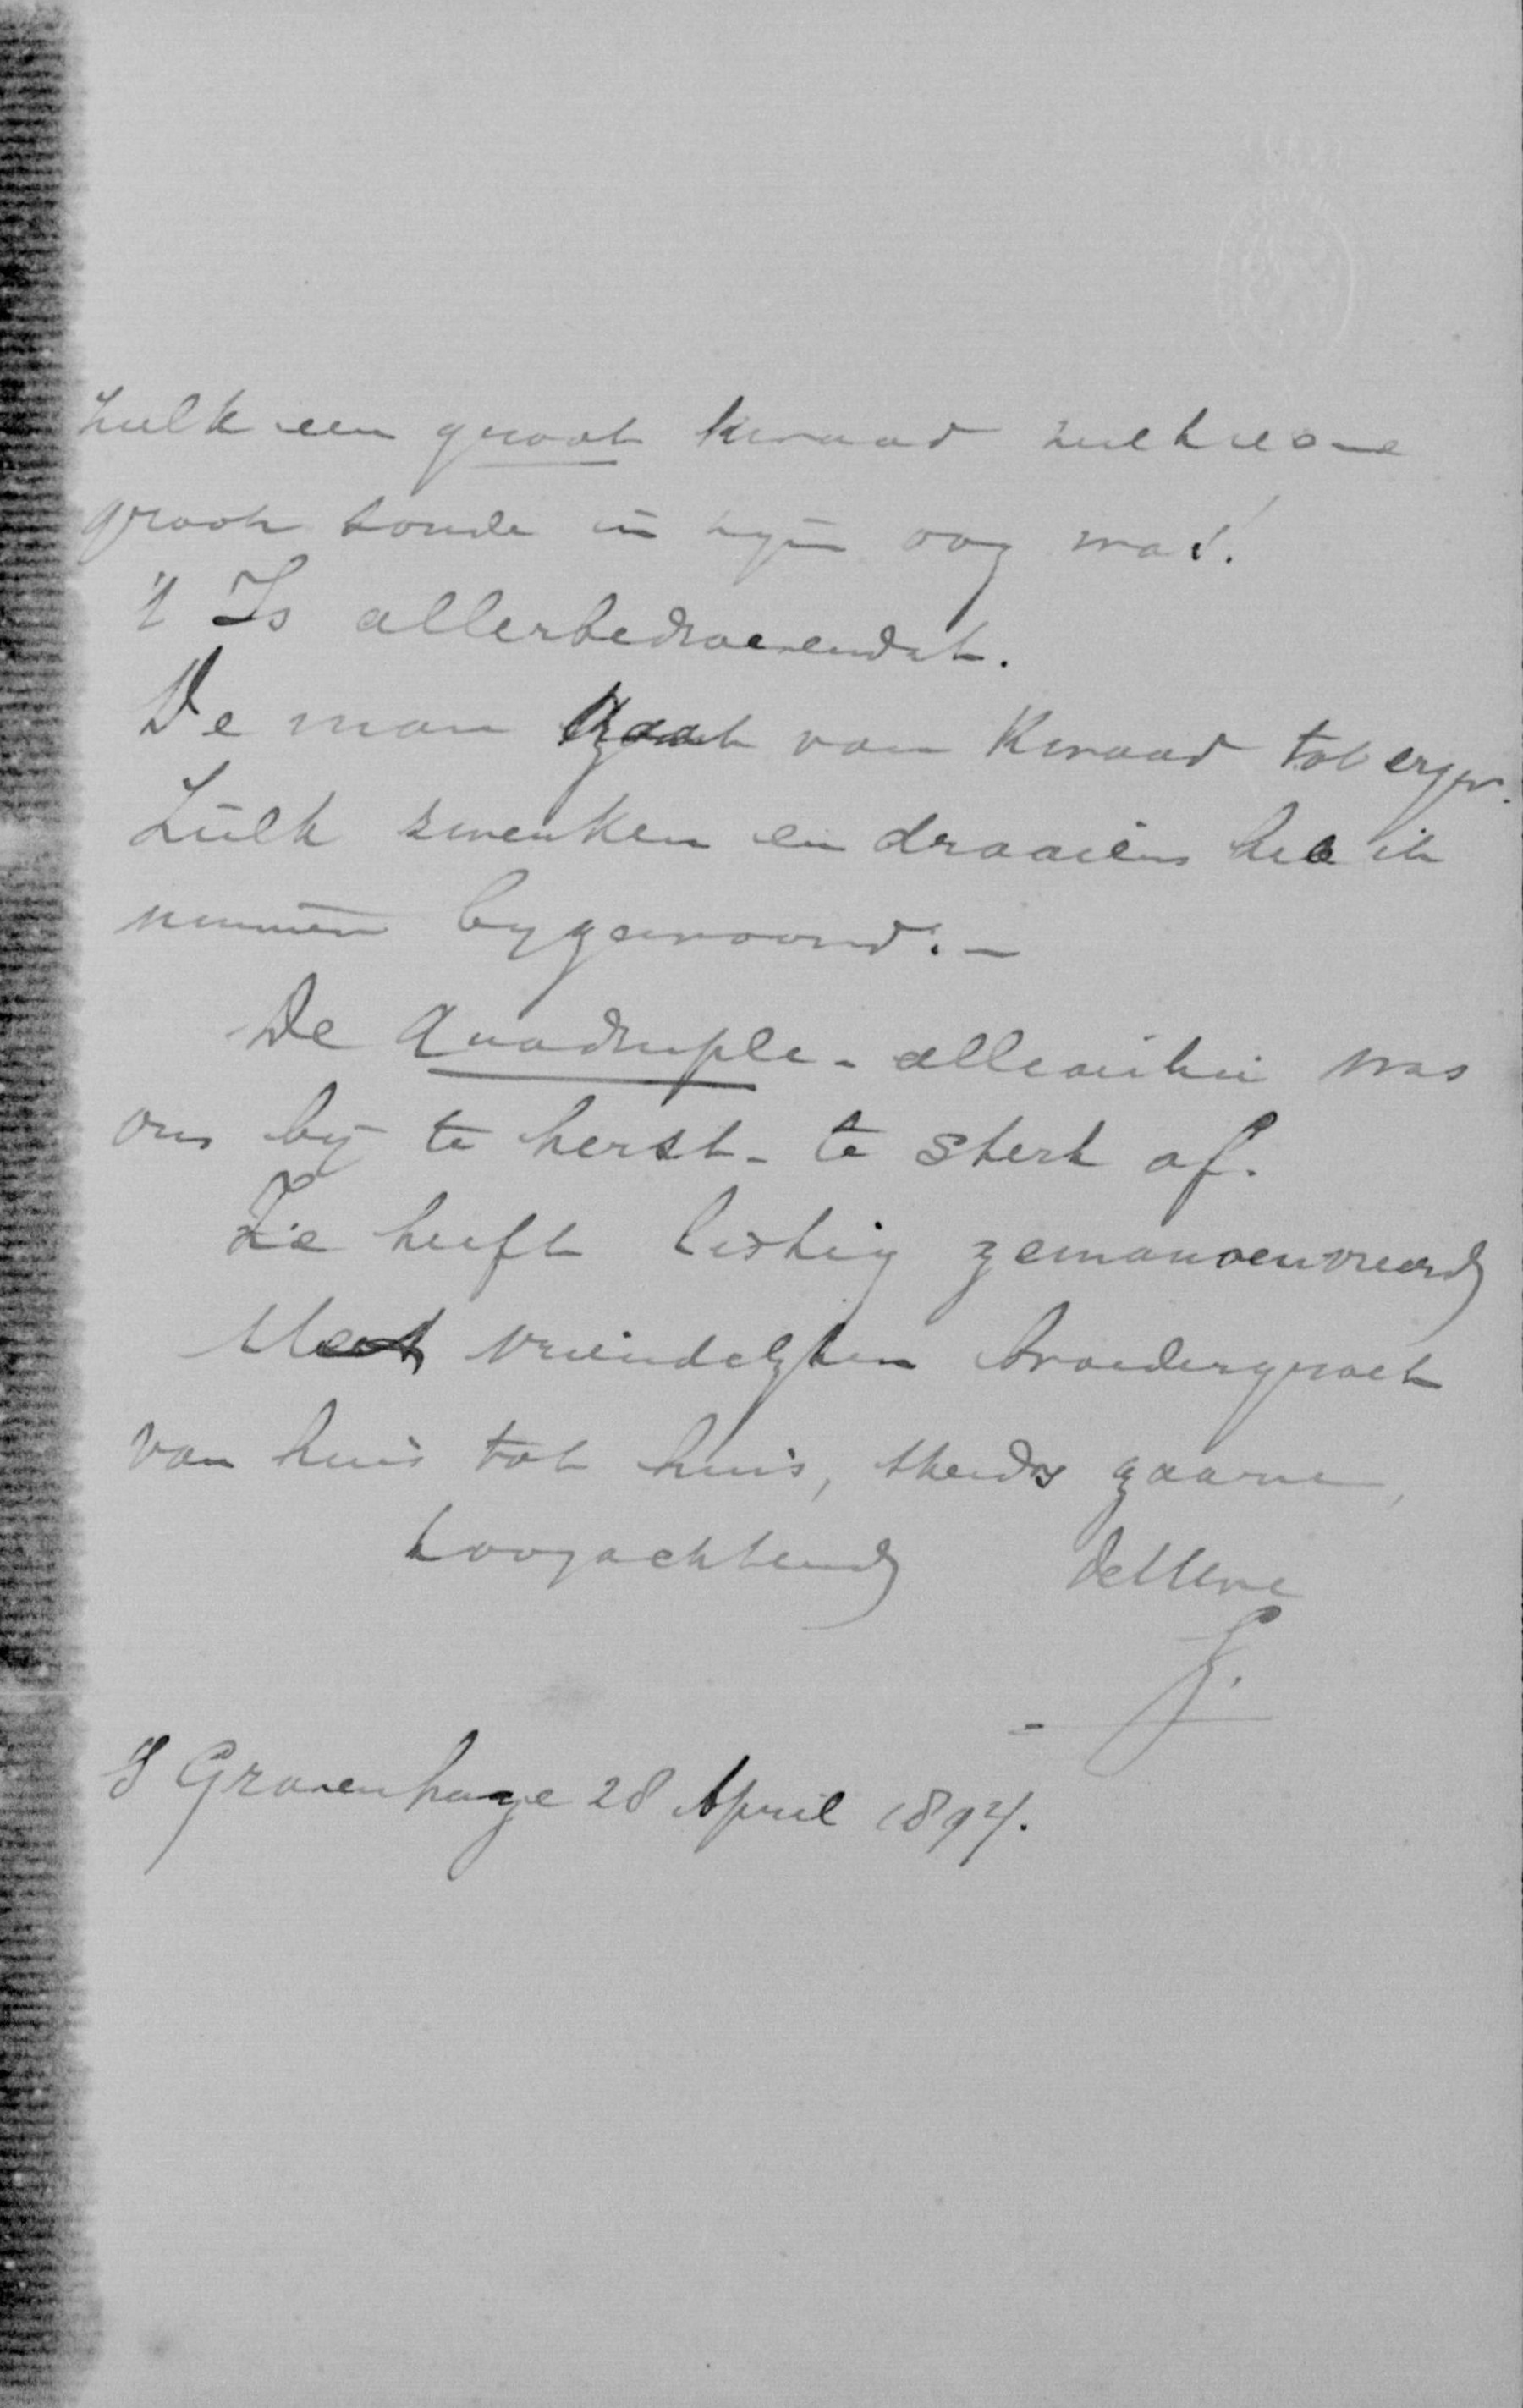 zulk een groot kwaad zulk eene
groote zonde in zijn oog was!
't Is allerbedroevendst.
De man gaat van kwaad tot erger.
Zulk zwenken en draaien heb ik
nimmer bygewoond. –
De Quadruple-alliantie was
ons by de herst. te sterk af.
Ze heeft listig gemanoeuvreerd
Met vriendelyken broedergroet
van huis tot huis, steeds gaarne,
hoogachtend de Uwe
S Gravenhage 28 April 1894.